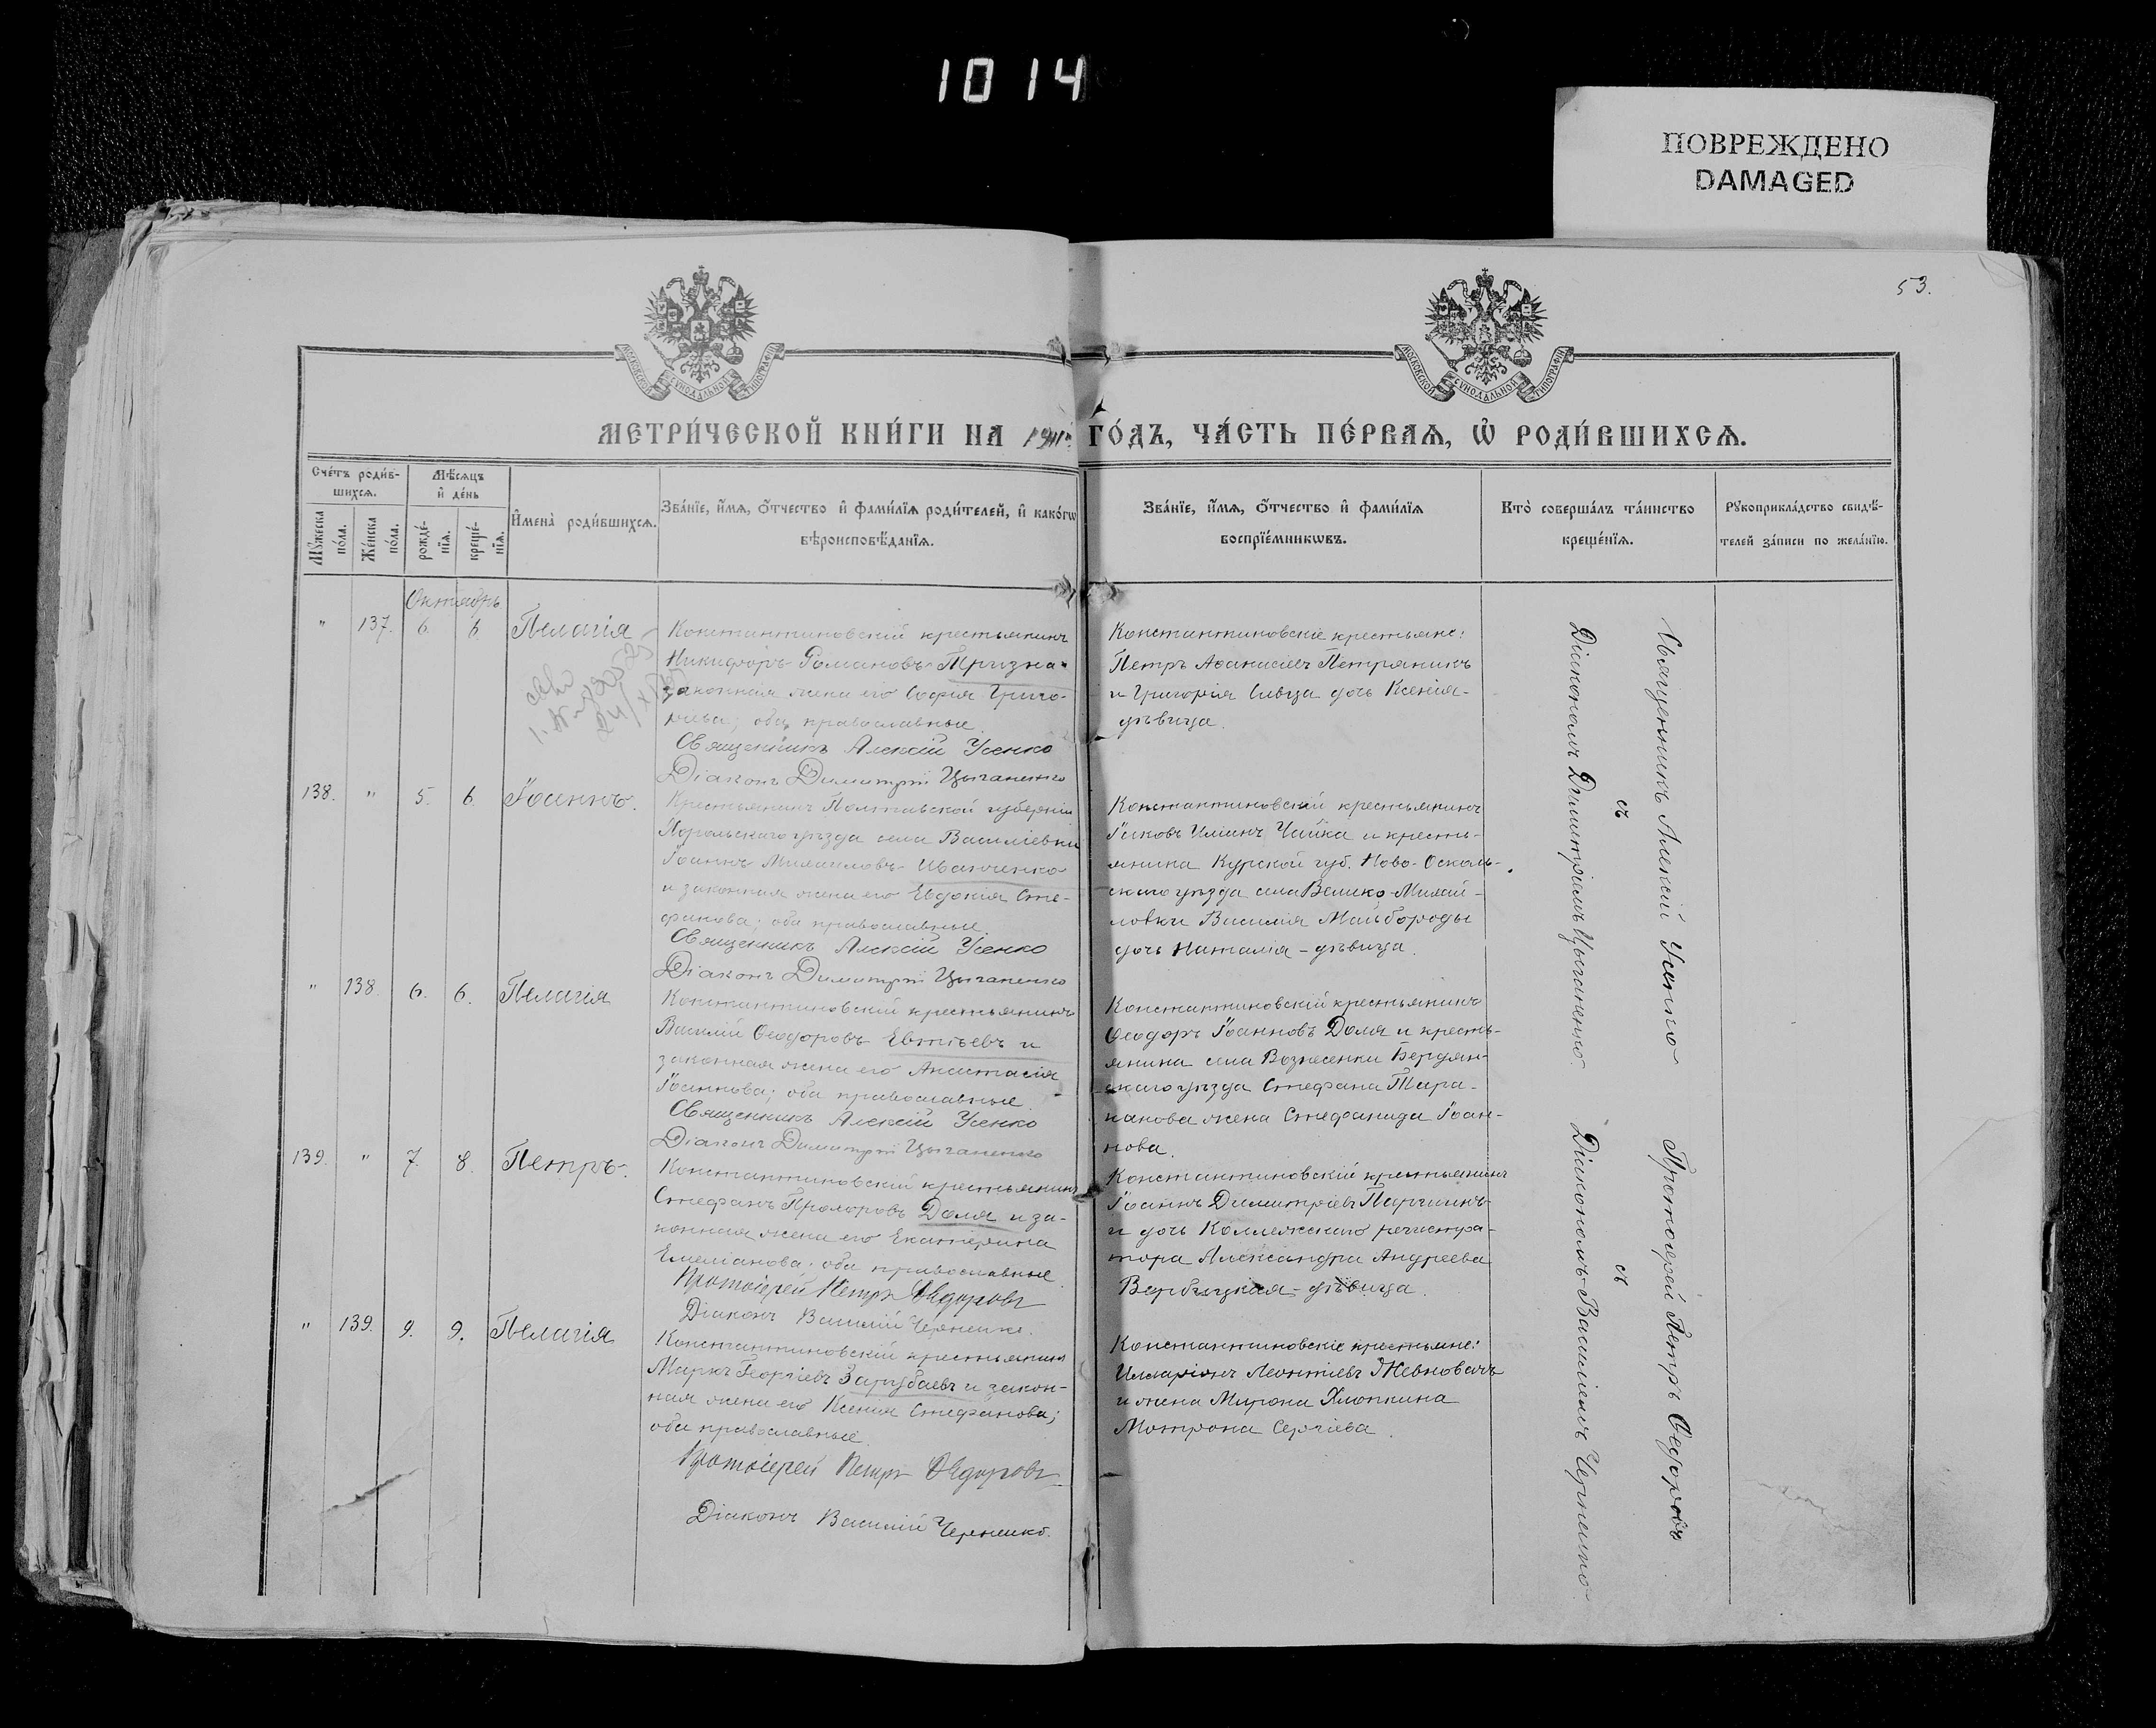 1014
ПОВРЕЖДЕНО
DAMAGED
53.
МОСКОВСКОЙ СѴНОДАЛЬНОЙ ТИПОГРАФІИ
МОСКОВСКОЙ СѴНОДАЛЬНОЙ ТИПОГРАФІИ
МЕТРИ́ЧЕСКОЙ КНИ́ГИ НА ГО́ДЪ, ЧА́СТЬ ПЕ́РВАѦ, Ѡ РОДИ́ВШИХСѦ.
Сче́тъ роди́в-
шихсѧ.
Мꙋ́жеска по́ла.
Же́нска по́ла.
Мѣ́сѧцъ
и҆ де́нь
рожде́-
нїѧ.
креще́-
нїѧ.
И҆мена̀ роди́вшихсѧ.
Зва́нїе, и҆́мѧ, ѻ҆́тчество и҆ фами́лїѧ роди́телей, и҆ како́гѡ
вѣроисповѣ́данїѧ.
Зва́нїе, и҆́мѧ, ѻ҆́тчество и҆ фами́лїѧ
воспрїе́мникѡвъ.
Кто̀ соверша́лъ та́инство
креще́нїѧ.
Рꙋкоприкла́дство свидѣ́-
телей за́писи по жела́нїю.
Октябрь
" 137. 6. 6. Пелагія
Константиновскій крестьянинъ
Никифоръ Романовъ Тризна
законная жена его Софія Григо-
рьева; оба православные.
Священникъ Алексій Усенко
Діаконъ Димитрій Цыганенко
Константиновскіе крестьяне:
Петръ Аѳанасіевъ Петряникъ
и Григорія Сивца дочь Ксенія-
дѣвица.
138. " 5. 6. Іоаннъ.
Крестьянинъ Полтавской губерніи
Хорольскаго уѣзда села Василіевки
Іоаннъ Михаиловъ Иванченко
и законная жена его Евдокія Сте-
фанова; оба православные.
Священникъ Алексій Усенко
Діаконъ Димитрій Цыганенко
Константиновскій крестьянинъ
Іаковъ Чайка и кресть-
янина Курской губ. Ново-Осколь-
скаго уѣзда села Велико-Михай-
ловки Василія Майбороды
дочь Наталія - дѣвица.
" 138 6. 6. Пелагія
Константиновскій крестьянинъ
Василій Ѳеодоровъ Евтіевъ и
законная жена его Анастасія
Іоаннова; оба православные.
Священникъ Алексій Усенко
Діаконъ Димитрій Цыганенко
Константиновскій крестьянинъ
Ѳеодоръ Іоанновъ Доля и кресть-
янина села Вознесенки Бердян-
скаго уѣзда Стефана Тара-
канова жена Стефанида Іоан-
нова.
139. " 7. 8. Петръ.
Константиновскій крестьянинъ
Стефанъ Прохоровъ Доля и за-
конная жена его Екатерина
Емеліанова; оба православные.
Протоіерей Петръ Ѳедоровъ
Діаконъ Василій Черненко.
Константиновскій крестьянинъ
Іоаннъ Димитріевъ Паршинъ
и дочь Коллежскаго регистра-
тора Александра Андреева
Вербицкая - дѣвица.
" 139. 9. 9. Пелагія
Константиновскій крестьянинъ
Маркъ Георгіевъ Зарубаевъ и закон-
ная жена его Ксенія Стефанова;
оба православные.
Протоіерей Петръ Ѳедоровъ
Діаконъ Василій Черненко.
Константиновскіе крестьяне:
Илларіонъ Леонтіевъ Жевновачъ
и жена Мирона Хлопкина
Матрона Сергіева.
Священникъ Алексій Усенко
съ
Діакономъ Димитріемъ Цыганенко.
Протоіерей Петръ Ѳедоровъ
съ
Діакономъ Василіемъ Черненко.